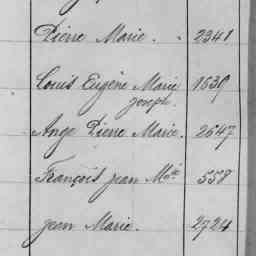 Pierre Marie. 2341
Louis Eugène Marie 1639
Joseph.
Ange Pierre Marie. 2647
François Jean Mie 558
Jean Marie. 2724